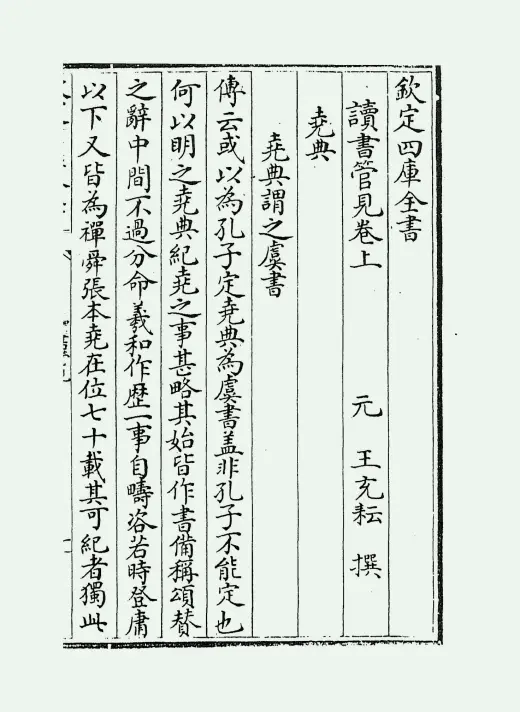 欽定四庫全書
讀書管見卷上
元 王充耘 撰
堯典
堯典謂之虞書
傳云或以為孔子定堯典為虞書盖非孔子不能定也
何以明之堯典紀堯之事甚略其始皆作書備稱頌賛
之辭中間不過分命羲和作歴一事自疇咨若時登庸
以下又皆為禪舜張本堯在位七十載其可紀者獨此